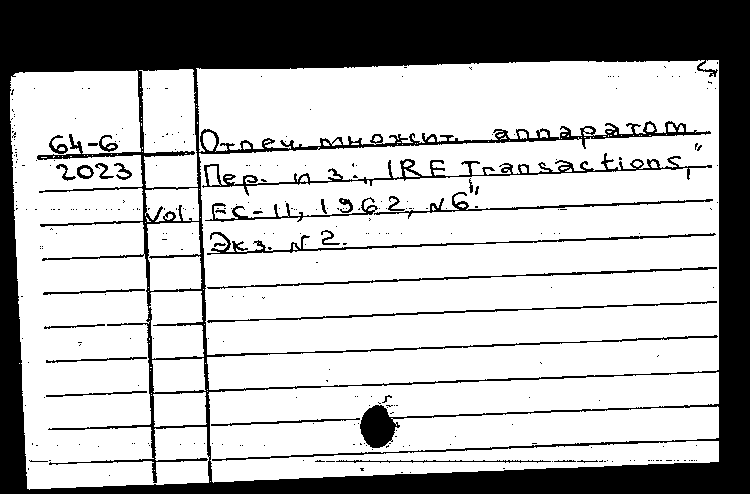 64-6 Отпеч. множит. аппаратом.
2023 Пер. из: „IRE Transactions,"
Vol. EC-11, 1962, N6".
Экз. N 2.